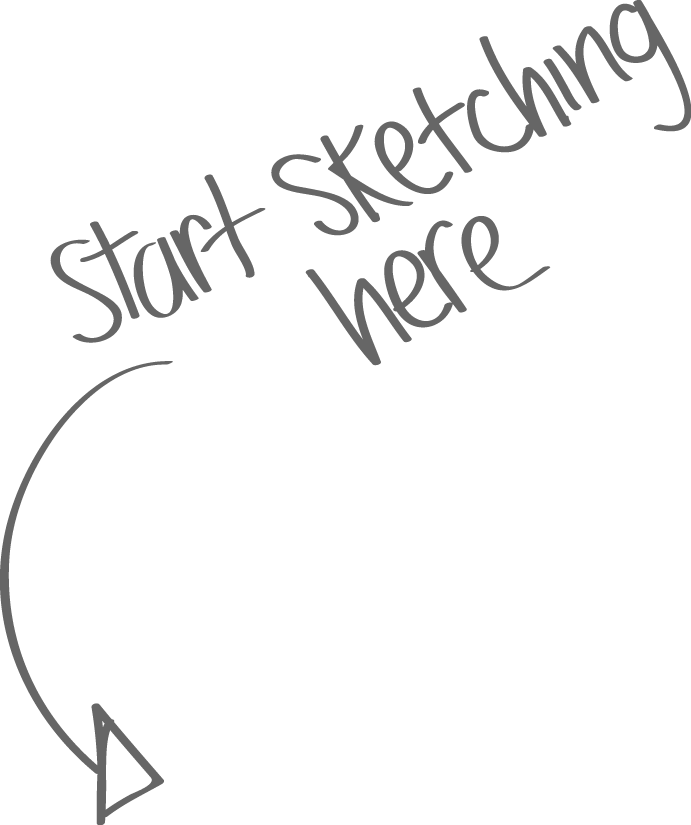 Start Sketching
here